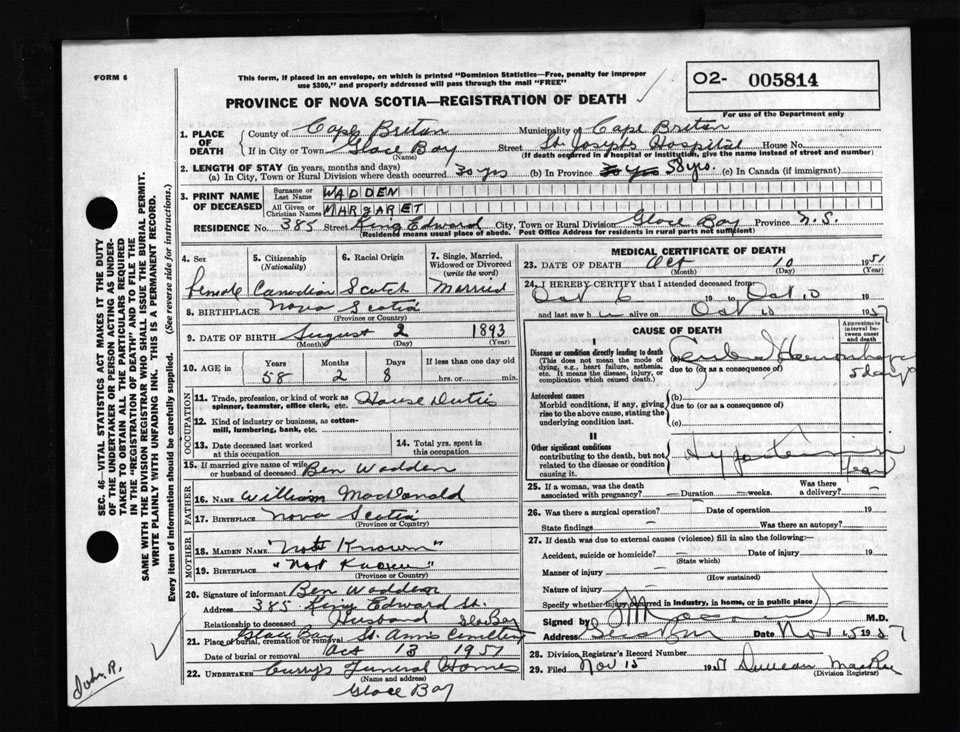 FORM 6
This form, if placed in an envelope, on which is printed "Dominion Statistics—Free, penalty for improper
use $300," and properly addressed will pass through the mail "FREE"
O2- 005814
PROVINCE OF NOVA SCOTIA—REGISTRATION OF DEATH
For use of the Department only
1. PLACE OF DEATH
County of Cape Breton Municipality of Cape Breton
If in City or Town Glace Bay Street St. Joseph's Hospital House No.
(Name) (If death occurred in a hospital or institution, give the name instead of street and number)
2. LENGTH OF STAY (in years, months and days)
(a) In City, Town or Rural Division where death occurred 30 yrs (b) In Province 30 yrs 58 yrs. (c) In Canada (if immigrant)
3. PRINT NAME OF DECEASED
Surname or Last Name WADDEN
All Given or Christian Names MARGARET
RESIDENCE No. 385 Street King Edward City, Town or Rural Division Glace Bay Province N.S.
(Residence means usual place of abode. Post Office Address for residents in rural parts not sufficient)
4. Sex female
5. Citizenship (Nationality) Canadian
6. Racial Origin Scotch
7. Single, Married, Widowed or Divorced (write the word) Married
8. BIRTHPLACE Nova Scotia
(Province or Country)
9. DATE OF BIRTH August 2 1893
(Month) (Day) (Year)
10. AGE in Years Months Days If less than one day old
58 2 8 hrs. or min.
OCCUPATION
11. Trade, profession, or kind of work as spinner, teamster, office clerk, etc. House Duties
12. Kind of industry or business, as cotton-mill, lumbering, bank, etc.
13. Date deceased last worked at this occupation
14. Total yrs. spent in this occupation
15. If married give name of wife or husband of deceased Ben Wadden
FATHER
16. NAME William MacDonald
17. BIRTHPLACE Nova Scotia
(Province or Country)
MOTHER
18. MAIDEN NAME "Not Known"
19. BIRTHPLACE "Not Known"
(Province or Country)
20. Signature of informant Ben Wadden
Address 385 King Edward St.
Relationship to deceased Husband Glace Bay
21. Place of burial, cremation or removal Glace Bay St. Anns Cemetery
Date of burial or removal Oct 13 1951
22. UNDERTAKER Curry's Funeral Homes
(Name and address)
Glace Bay
MEDICAL CERTIFICATE OF DEATH
23. DATE OF DEATH Oct 10 1951
(Month) (Day) (Year)
24. I HEREBY CERTIFY that I attended deceased from
Oct 6 19 to Oct 10 19
and last saw h alive on Oct 10 1951
CAUSE OF DEATH
Approximate interval between onset and death
I
Disease or condition directly leading to death (a) Cerebral Hemorrhage
(This does not mean the mode of dying, e.g., heart failure, asthenia, etc. It means the disease, injury, or complication which caused death.)
due to (or as a consequence of) 5 days
Antecedent causes
Morbid conditions, if any, giving rise to the above cause, stating the underlying condition last.
(b)
due to (or as a consequence of)
(c)
II
Other significant conditions
contributing to the death, but not related to the disease or condition causing it.
Hypertension
25. If a woman, was the death associated with pregnancy? — Duration — weeks. Was there a delivery? —
26. Was there a surgical operation? — Date of operation 19
State findings — Was there an autopsy?
27. If death was due to external causes (violence) fill in also the following:—
Accident, suicide or homicide? — Date of injury 19
(State which)
Manner of injury —
(How sustained)
Nature of injury —
Specify whether injury occurred in industry, in home, or in public place
Signed by M.D.
Address Date Nov 15 1951
28. Division Registrar's Record Number
29. Filed Nov 15 1951 Duncan MacRae
(Division Registrar)
SEC. 46—VITAL STATISTICS ACT MAKES IT THE DUTY
OF THE UNDERTAKER OR PERSON ACTING AS UNDER-
TAKER TO OBTAIN ALL THE PARTICULARS REQUIRED
IN THE "REGISTRATION OF DEATH" AND TO FILE THE
SAME WITH THE DIVISION REGISTRAR WHO SHALL ISSUE THE BURIAL PERMIT.
WRITE PLAINLY WITH UNFADING INK. THIS IS A PERMANENT RECORD.
Every item of information should be carefully supplied. (See reverse side for instructions.)
John R.